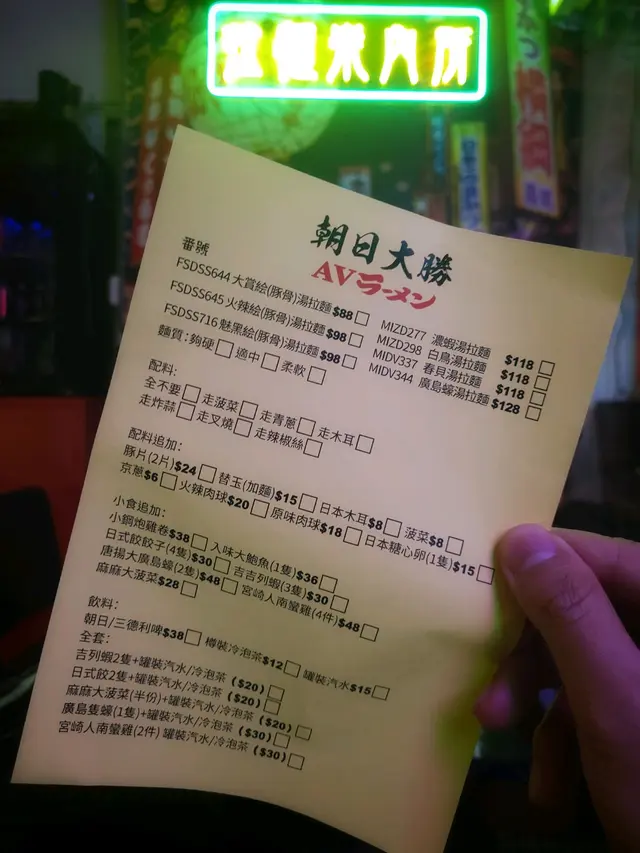 朝日大勝
AVラーメン
番號
FSDSS644 大賞絵(豚骨)湯拉麵 $88
FSDSS645 火辣絵(豚骨)湯拉麵 $98
FSDSS716 魅黑絵(豚骨)湯拉麵 $98
麵質：夠硬 適中 柔軟
MIZD277 濃蝦湯拉麵 $118
MIZD298 白鳥湯拉麵 $118
MIDV337 春貝湯拉麵 $118
MIDV344 廣島蠔湯拉麵 $128
配料：
全不要 走菠菜 走青蔥 走木耳
走炸蒜 走叉燒 走辣椒絲
配料追加：
豚片(2片)$24 替玉(加麵)$15 日本木耳$8 菠菜$8
京蔥$6 火辣肉球$20 原味肉球$18 日本糖心卵(1隻)$15
小食追加：
小鋼炮雞卷$38 入味大鮑魚(1隻)$36
日式餃餃子(4隻)$30 吉吉列蝦(3隻)$30
唐揚大廣島蠔(2隻)$48 宮崎人南蠻雞(4件)$48
麻麻大菠菜$28
飲料：
朝日/三德利啤$38 樽裝冷泡茶$12 罐裝汽水$15
全套：
吉列蝦2隻+罐裝汽水/冷泡茶 ($20)
日式餃2隻+罐裝汽水/冷泡茶 ($20)
麻麻大菠菜(半份)+罐裝汽水/冷泡茶 ($20)
廣島隻蠔(1隻)+罐裝汽水/冷泡茶 ($30)
宮崎人南蠻雞(2件) 罐裝汽水/冷泡茶 ($30)